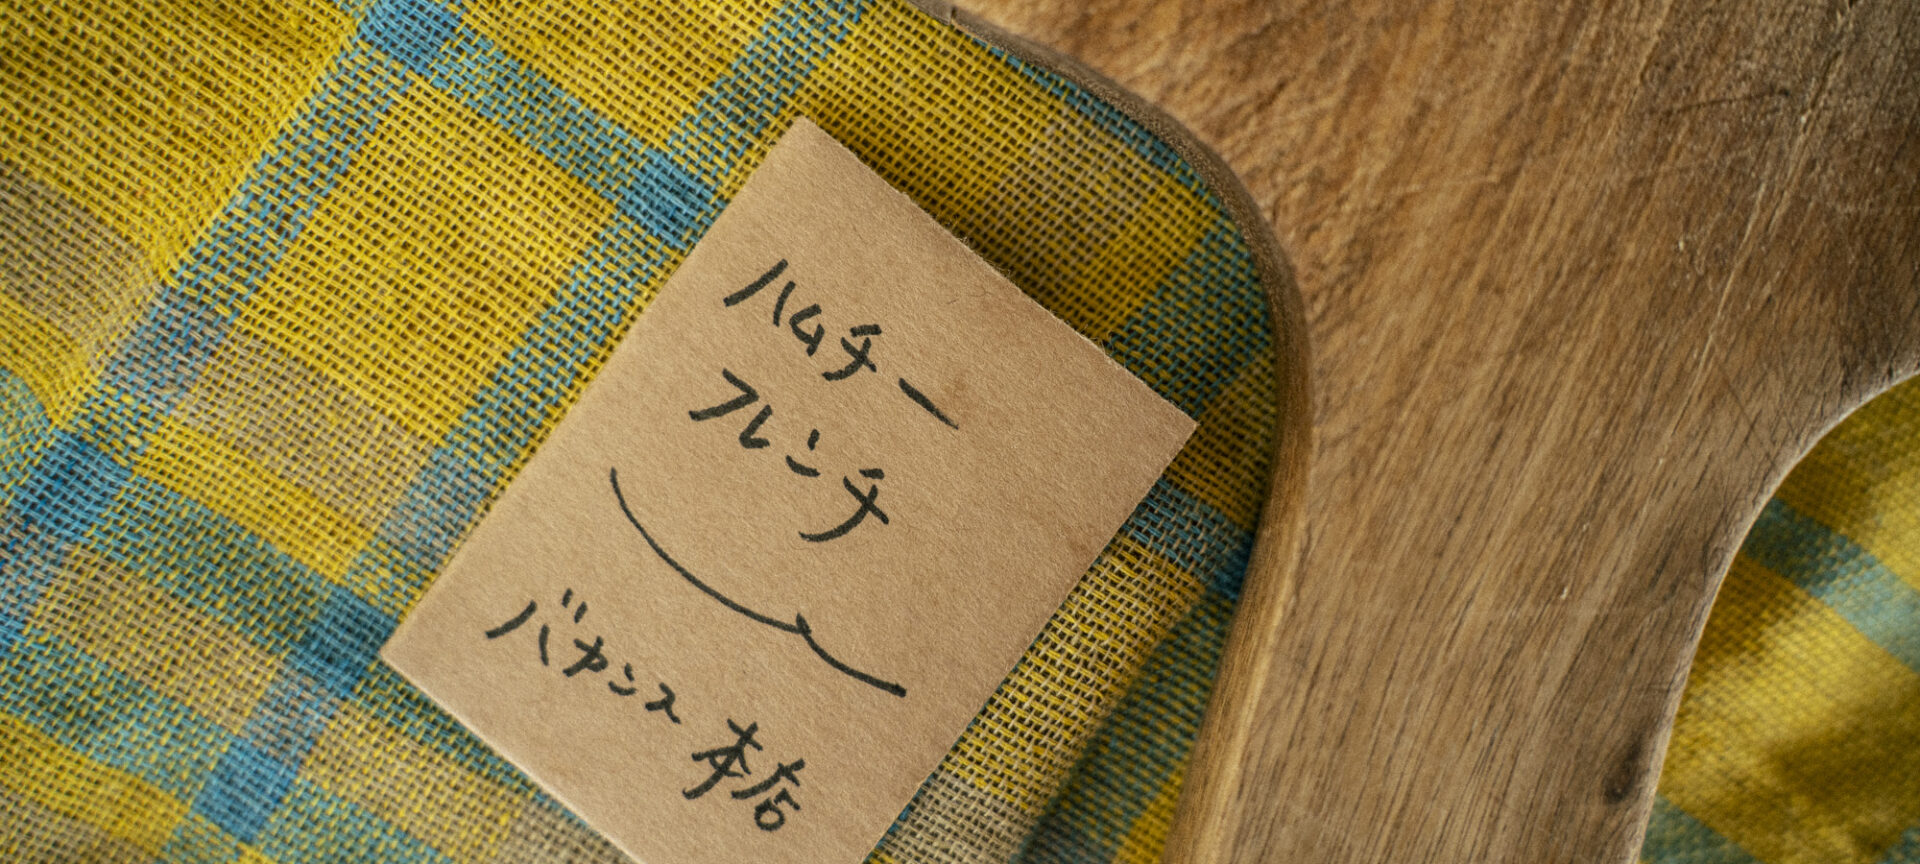 ハムチー
フレンチ
バカンス 本店